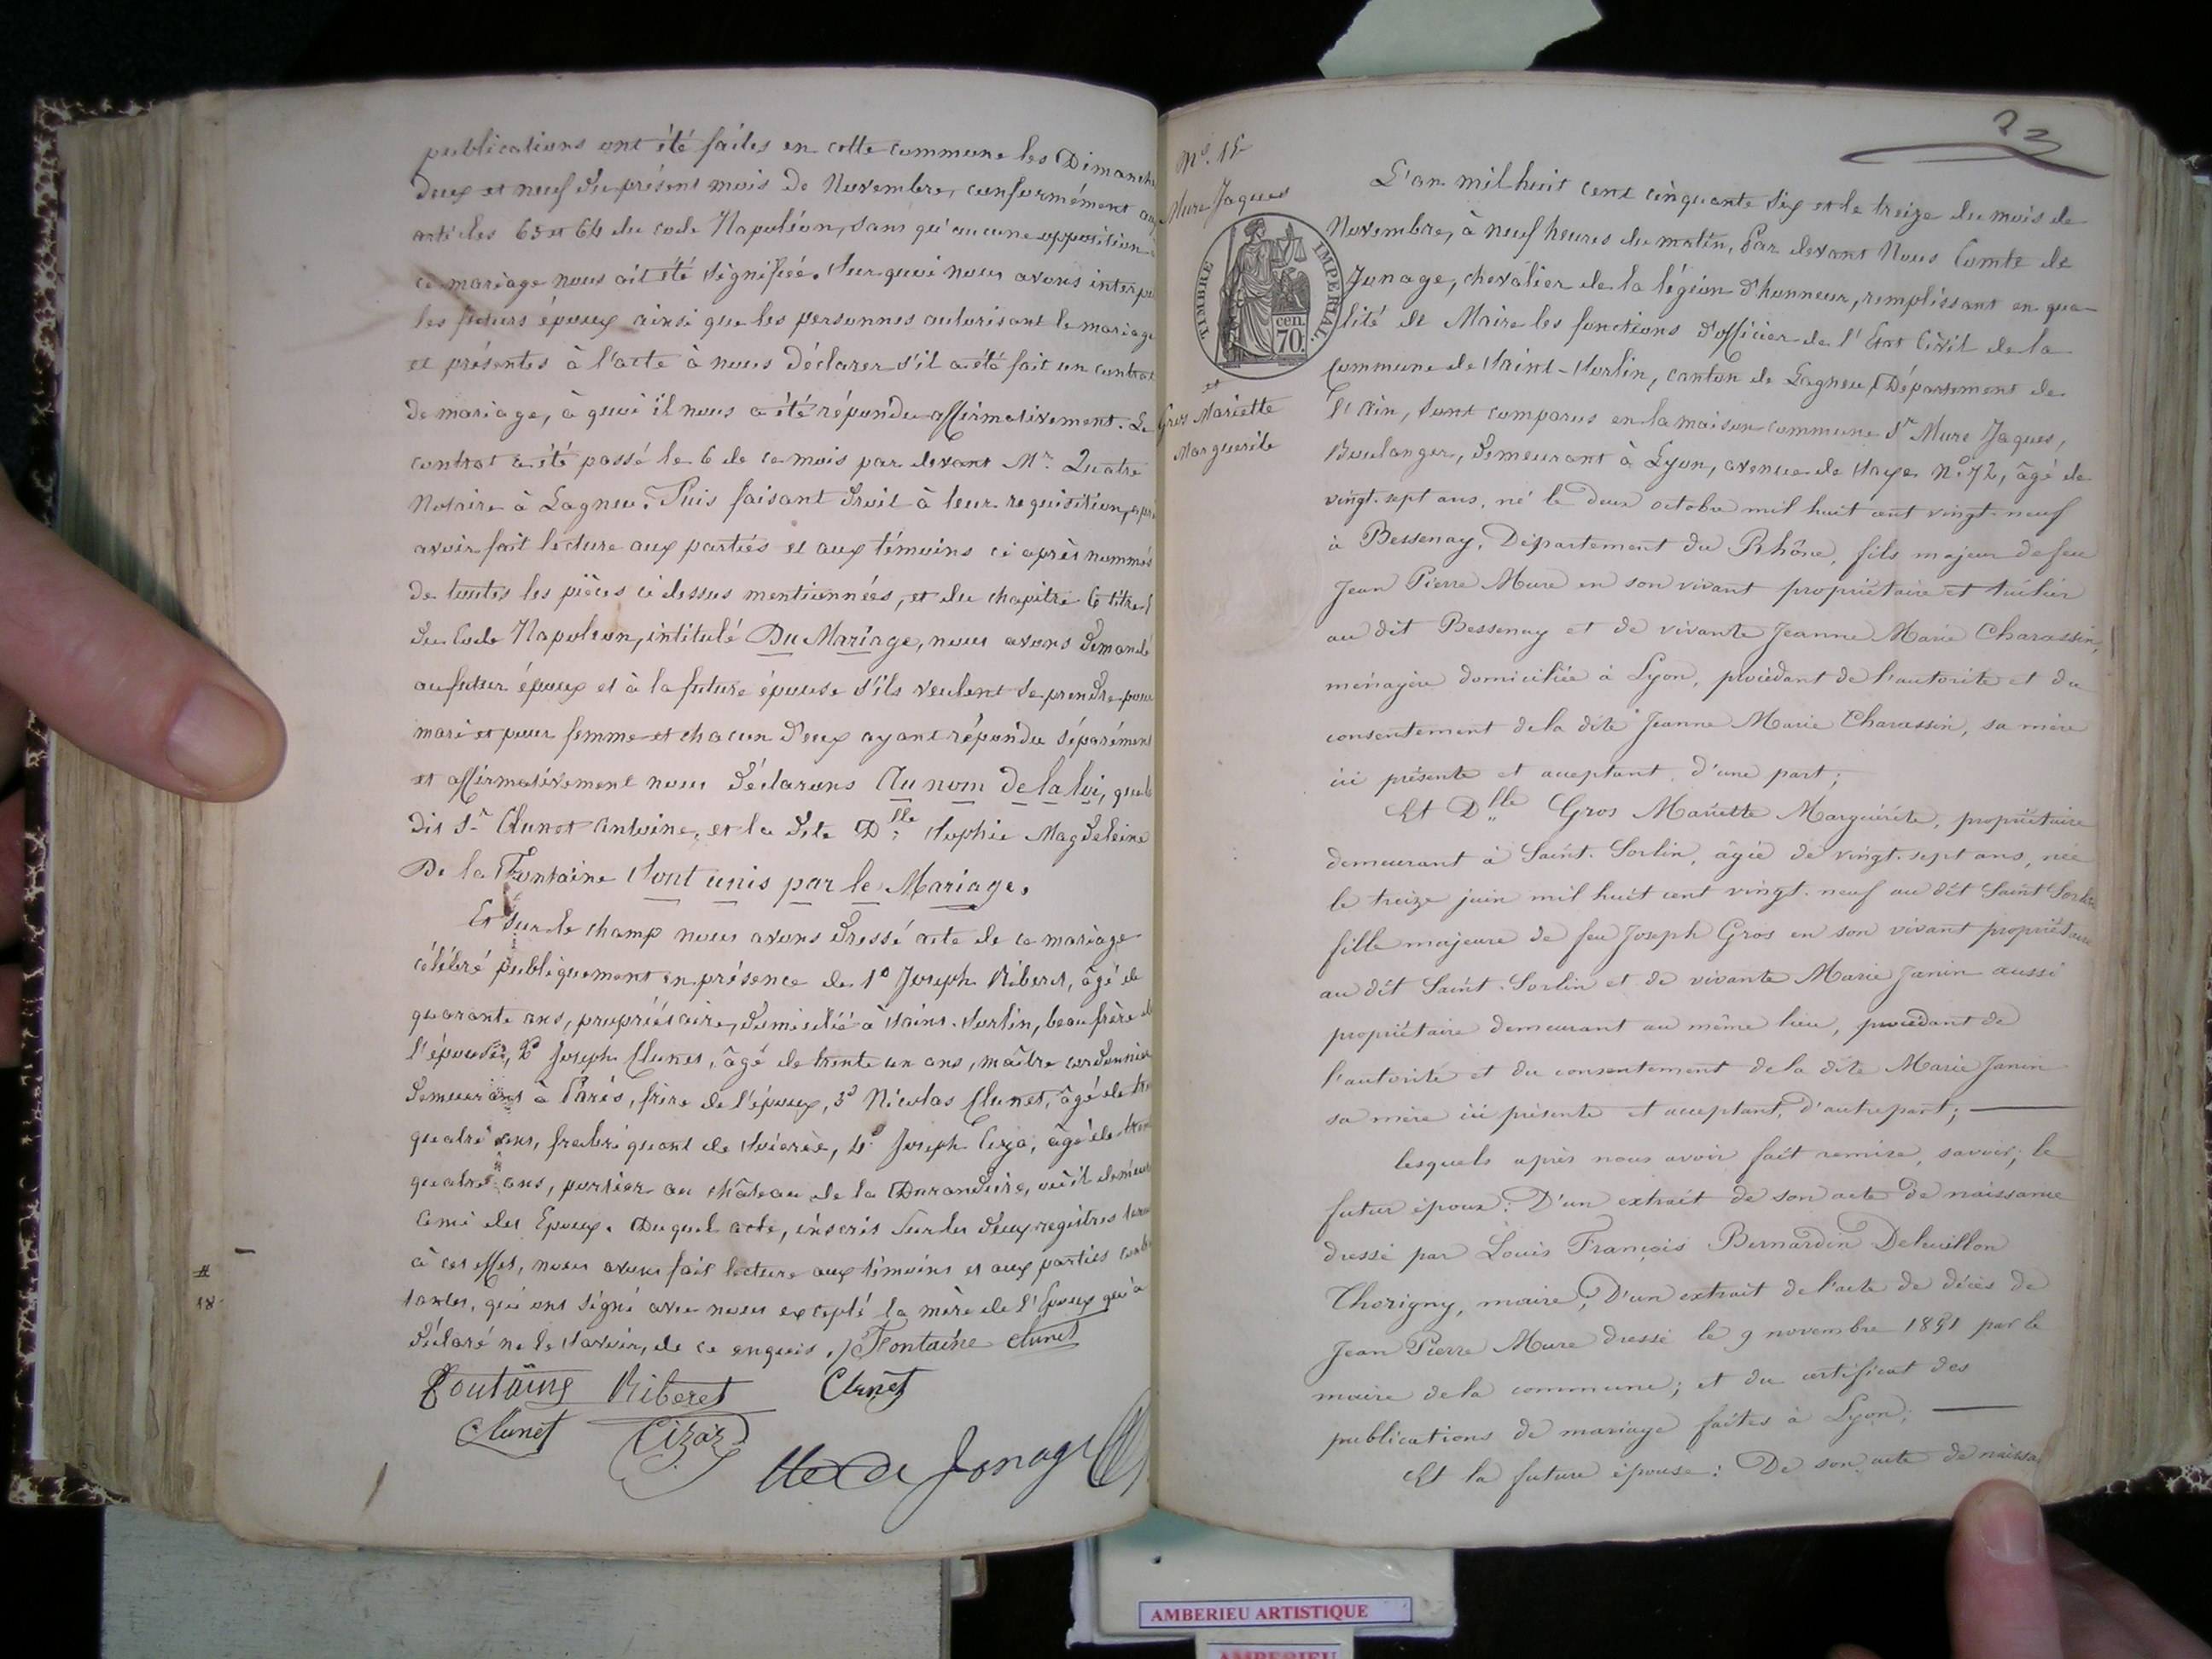 publications ont été faites en cette commune les Dimanche
deux et neuf du présent mois de Novembre, conformément aux
articles 63 et 64 du code Napoléon, sans qu'aucune opposition à
ce mariage nous ait été signifiée. Sur quoi nous avons interpe
les futurs époux ainsi que les personnes autorisant le mariage
et présentes à l'acte à nous déclarer s'il a été fait un contrat
de mariage, à quoi il nous a été répondu affirmativement. Le
contrat a été passé le 6 de ce mois par devant Mr. Quatre
Notaire à Lagneu. Puis faisant droit à leur requisition, apr
avoir fait lecture aux parties et aux témoins ci après nommés
de toutes les pièces ci dessus mentionnées, et du chapitre 6 titre
du Code Napoléon, intitulé Du Mariage, nous avons demandé
au futur époux et à la future épouse s'ils veulent se prendre pour
mari et pour femme et chacun d'eux ayant répondu séparément
et affirmativement nous déclarons Au nom de la loi, que le
dit Sr. Clunet Antoine, et la dite Dlle Sophie Magdeleine
De la Fontaine Sont unis par le Mariage.
Et sur le champ nous avons dressé acte de ce mariage
célébré publiquement en présence de 1º Joseph Riberet, âgé de
quarante ans, propriétaire, domicilié à Saint-Sorlin, beau frère de
l'épouse, 2º Joseph Clunet, âgé de trente un ans, maître cordonnier
demeurant à Paris, frère de l'époux, 3º Nicolas Clunet, âgé de
quatre ans, frabriquant de Soierie, 4º Joseph, âgé de
quatre ans, portier au château de la, où il demeure
ami des Epoux. Duquel acte, inscrit sur les deux registres
à cet effet, nous avons fait lecture aux témoins et aux parties
, qui ont signé avec nous excepté la mère de l'Epoux qui a
déclaré ne le savoir, de ce enquis. Fontaine Clunet
Fontaine Riberet Clunet
Clunet Cizoz
Cte De Jonage
18
23
Nº. 15
Mure Jaques
et
Gros Mariette
Marguerite
TIMBRE IMPERIAL.
cen.
70.
L'an mil huit cent cinquante six et le treize du mois de
Novembre, à neuf heures du matin, Par devant Nous Comte de
Jonage, chevalier de la légion d'honneur, remplissant en qua-
lité de Maire les fonctions d'officier de l'Etat Civil de la
Commune de Saint-Sorlin, canton de Lagneu, Département de
l'Ain, sont comparus en la maison commune Sr Mure Jaques,
Boulanger, demeurant à Lyon, avenue de Saxe Nº. 72, âgé de
vingt-sept ans, né le deux octobre mil huit cent vingt-neuf
à Bessenay, Département du Rhône, fils majeur de feu
Jean Pierre Mure en son vivant propriétaire et tuilier
au dit Bessenay et de vivante Jeanne Marie Charassin,
ménagère domiciliée à Lyon, procédant de l'autorité et du
consentement de la dite Jeanne Marie Charassin, sa mère
ici présente et acceptant, d'une part;
Et Dlle Gros Mariette Marguérite, propriétaire
demeurant à Saint-Sorlin, âgée de vingt-sept ans, née
le treize juin mil huit cent vingt-neuf au dit Saint Sorlin
fille majeure de feu Joseph Gros en son vivant propriétaire
au dit Saint-Sorlin et de vivante Marie Janin aussi
propriétaire demeurant au même lieu, procédant de
l'autorité et du consentement de la dite Marie Janin
sa mère ici présente et acceptant, d'autre part;
lesquels après nous avoir fait remise, savoir; le
futur époux: D'un extrait de son acte de naissance
dressé par Louis François Bernardin Delhuillon
Thorigny, maire; D'un extrait de l'acte de décès de
Jean Pierre Mure dressé le 9 novembre 1851 par le
maire de la commune; et du certificat des
publications de mariage faites à Lyon;
Et la future épouse: De son acte de naissa
AMBERIEU ARTISTIQUE
AMBERIEU